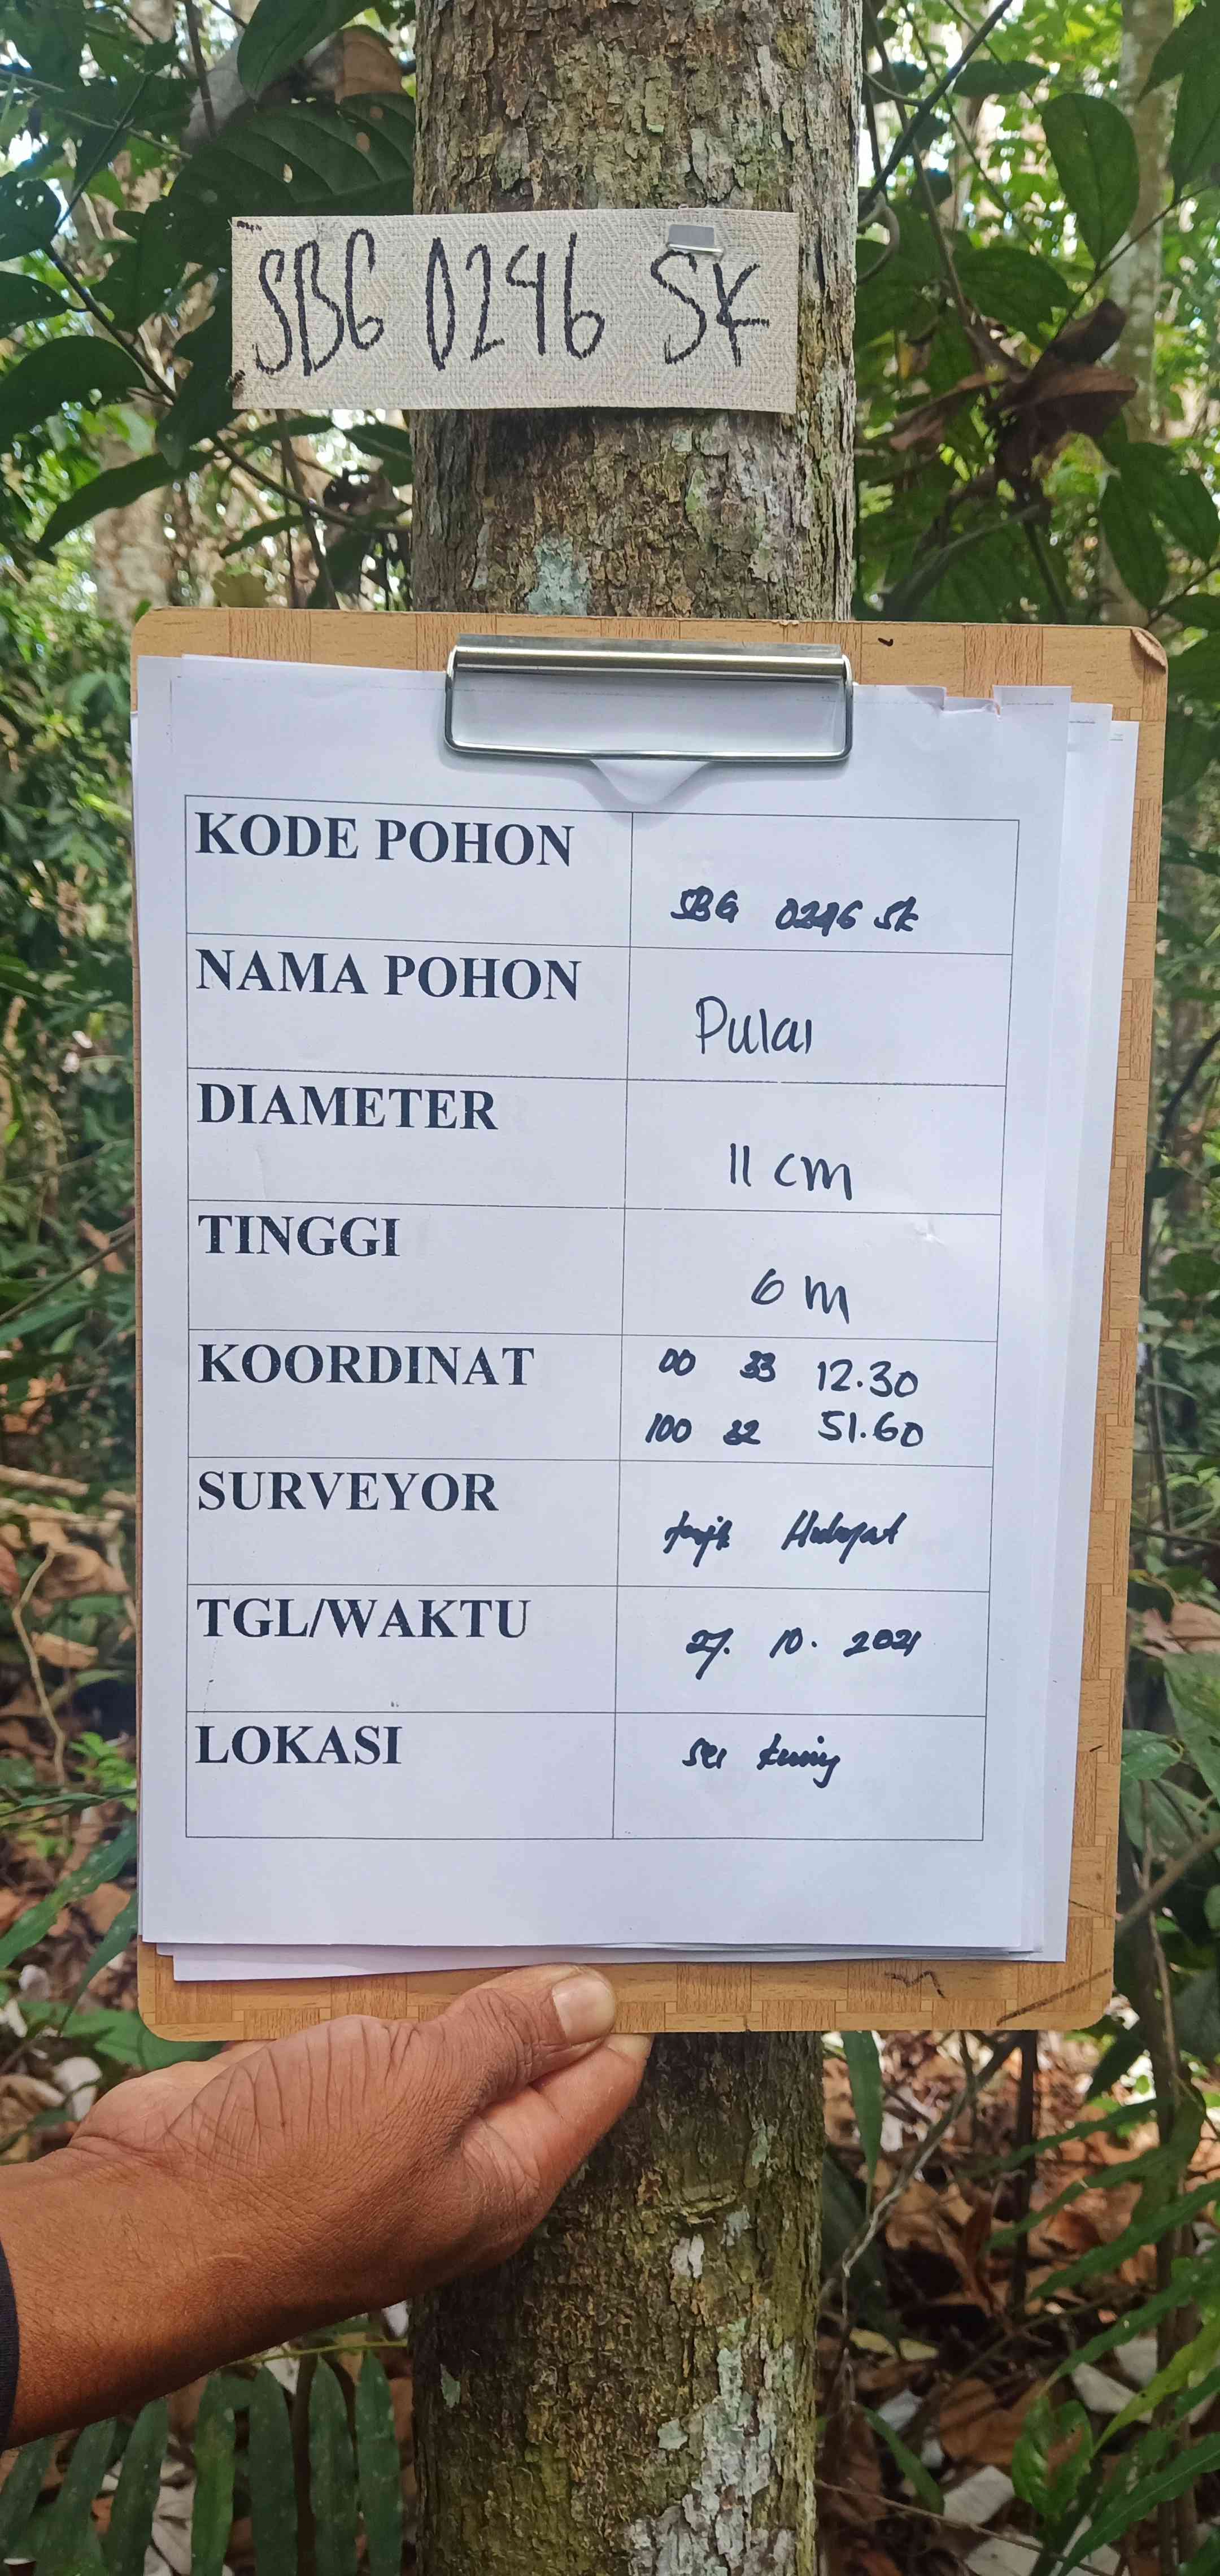 SBG 0246 SK
KODE POHON
SBG 0246 SK
NAMA POHON
Pulai
DIAMETER
11 cm
TINGGI
6 m
KOORDINAT
00 33 12.30
100 32 51.60
SURVEYOR
Hidayat
TGL/WAKTU
27. 10. 2021
LOKASI
sei kuning